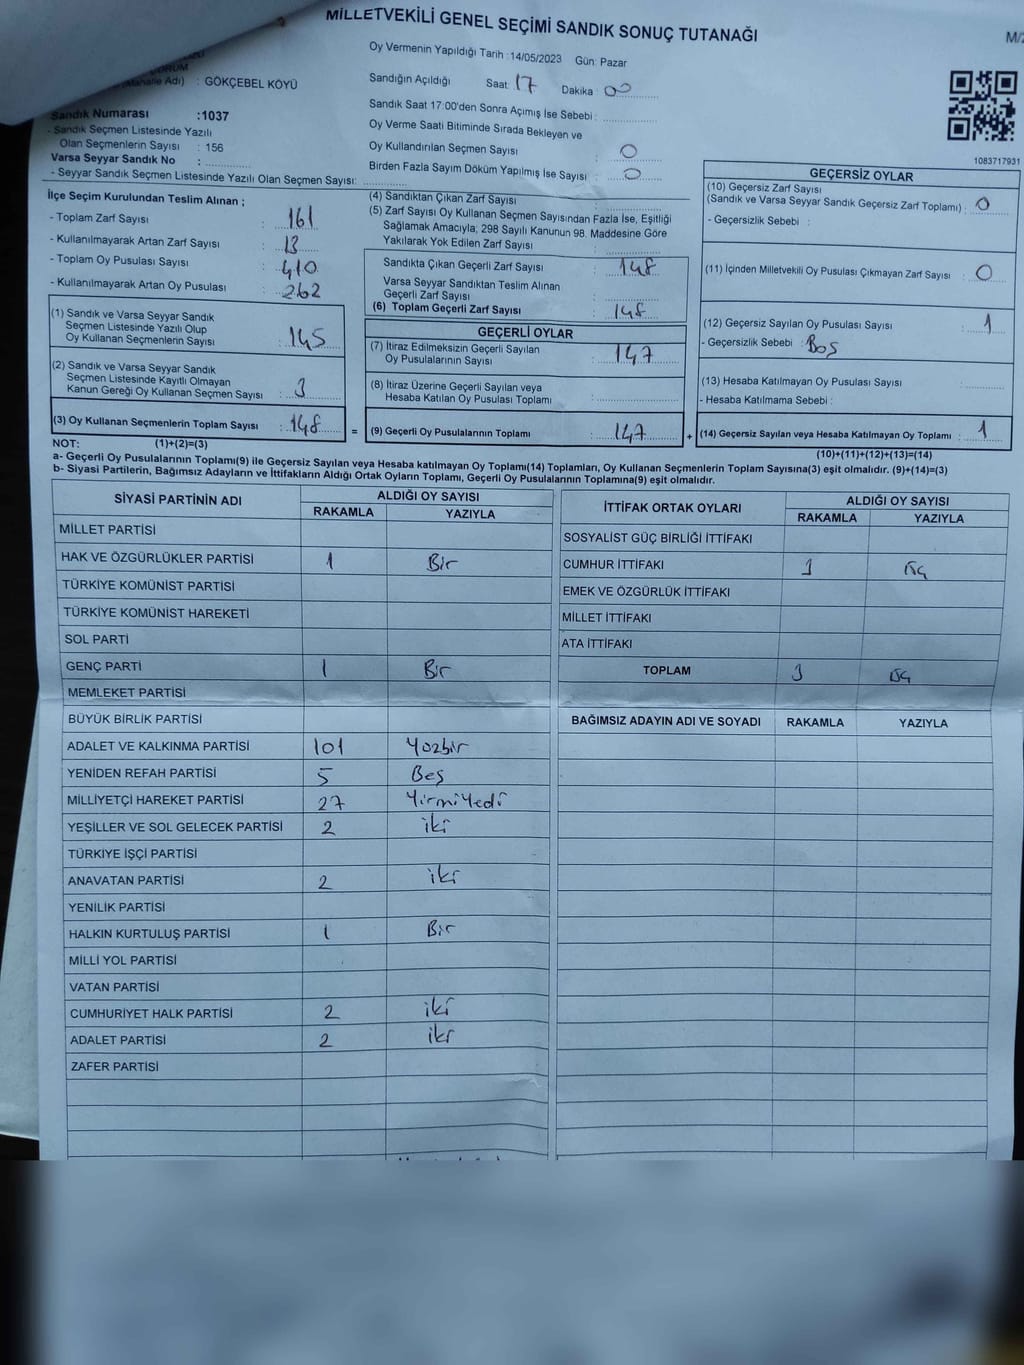 MİLLETVEKİLİ GENEL SEÇİMİ SANDIK SONUÇ TUTANAĞI
Oy Vermenin Yapıldığı Tarih :14/05/2023 Gün: Pazar
Adı) : GÖKÇEBEL KÖYÜ
Sandığın Açıldığı Saat: 17 Dakika : 00
Sandık Saat 17:00'den Sonra Açımış İse Sebebi :
Sandık Numarası :1037
- Sandık Seçmen Listesinde Yazılı
Olan Seçmenlerin Sayısı : 156
Varsa Seyyar Sandık No :
- Seyyar Sandık Seçmen Listesinde Yazılı Olan Seçmen Sayısı:
Oy Verme Saati Bitiminde Sırada Bekleyen ve
Oy Kullandırılan Seçmen Sayısı : 0
Birden Fazla Sayım Döküm Yapılmış İse Sayısı : 0
1083717931
İlçe Seçim Kurulundan Teslim Alınan ;
- Toplam Zarf Sayısı : 161
- Kullanılmayarak Artan Zarf Sayısı : 13
- Toplam Oy Pusulası Sayısı : 410
- Kullanılmayarak Artan Oy Pusulası : 262
(1) Sandık ve Varsa Seyyar Sandık
Seçmen Listesinde Yazılı Olup
Oy Kullanan Seçmenlerin Sayısı : 145
(2) Sandık ve Varsa Seyyar Sandık
Seçmen Listesinde Kayıtlı Olmayan
Kanun Gereği Oy Kullanan Seçmen Sayısı : 3
(3) Oy Kullanan Seçmenlerin Toplam Sayısı : 148 =
(4) Sandıktan Çıkan Zarf Sayısı :
(5) Zarf Sayısı Oy Kullanan Seçmen Sayısından Fazla İse, Eşitliği
Sağlamak Amacıyla; 298 Sayılı Kanunun 98. Maddesine Göre
Yakılarak Yok Edilen Zarf Sayısı :
Sandıkta Çıkan Geçerli Zarf Sayısı : 148
Varsa Seyyar Sandıktan Teslim Alınan
Geçerli Zarf Sayısı :
(6) Toplam Geçerli Zarf Sayısı : 148
GEÇERLİ OYLAR
(7) İtiraz Edilmeksizin Geçerli Sayılan
Oy Pusulalarının Sayısı : 147
(8) İtiraz Üzerine Geçerli Sayılan veya
Hesaba Katılan Oy Pusulası Toplamı :
(9) Geçerli Oy Pusulalarının Toplamı : 147 +
GEÇERSİZ OYLAR
(10) Geçersiz Zarf Sayısı
(Sandık ve Varsa Seyyar Sandık Geçersiz Zarf Toplamı) : 0
- Geçersizlik Sebebi :
(11) İçinden Milletvekili Oy Pusulası Çıkmayan Zarf Sayısı : 0
(12) Geçersiz Sayılan Oy Pusulası Sayısı : 1
- Geçersizlik Sebebi : Boş
(13) Hesaba Katılmayan Oy Pusulası Sayısı :
- Hesaba Katılmama Sebebi :
(14) Geçersiz Sayılan veya Hesaba Katılmayan Oy Toplamı : 1
NOT: (1)+(2)=(3) (10)+(11)+(12)+(13)=(14)
a- Geçerli Oy Pusulalarının Toplamı(9) ile Geçersiz Sayılan veya Hesaba katılmayan Oy Toplamı(14) Toplamları, Oy Kullanan Seçmenlerin Toplam Sayısına(3) eşit olmalıdır. (9)+(14)=(3)
b- Siyasi Partilerin, Bağımsız Adayların ve İttifakların Aldığı Ortak Oyların Toplamı, Geçerli Oy Pusulalarının Toplamına(9) eşit olmalıdır.
SİYASİ PARTİNİN ADI ALDIĞI OY SAYISI
RAKAMLA YAZIYLA
MİLLET PARTİSİ
HAK VE ÖZGÜRLÜKLER PARTİSİ 1 Bir
TÜRKİYE KOMÜNİST PARTİSİ
TÜRKİYE KOMÜNİST HAREKETİ
SOL PARTİ
GENÇ PARTİ 1 Bir
MEMLEKET PARTİSİ
BÜYÜK BİRLİK PARTİSİ
ADALET VE KALKINMA PARTİSİ 101 Yüzbir
YENİDEN REFAH PARTİSİ 5 Beş
MİLLİYETÇİ HAREKET PARTİSİ 27 YirmiYedi
YEŞİLLER VE SOL GELECEK PARTİSİ 2 iki
TÜRKİYE İŞÇİ PARTİSİ
ANAVATAN PARTİSİ 2 iki
YENİLİK PARTİSİ
HALKIN KURTULUŞ PARTİSİ 1 Bir
MİLLİ YOL PARTİSİ
VATAN PARTİSİ
CUMHURİYET HALK PARTİSİ 2 iki
ADALET PARTİSİ 2 iki
ZAFER PARTİSİ
İTTİFAK ORTAK OYLARI ALDIĞI OY SAYISI
RAKAMLA YAZIYLA
SOSYALİST GÜÇ BİRLİĞİ İTTİFAKI
CUMHUR İTTİFAKI 3 üç
EMEK VE ÖZGÜRLÜK İTTİFAKI
MİLLET İTTİFAKI
ATA İTTİFAKI
TOPLAM 3 üç
BAĞIMSIZ ADAYIN ADI VE SOYADI RAKAMLA YAZIYLA